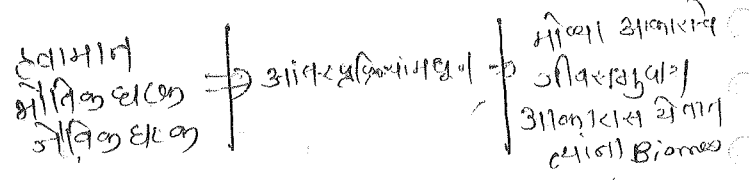 हवामान
भौतिक घटक
जैविक घटक
⇒ आंतरप्रक्रियांमधून ⇒
मोठ्या आकाराचे
जीवसमुदाय
आकारास येतात
त्यांना Biomes